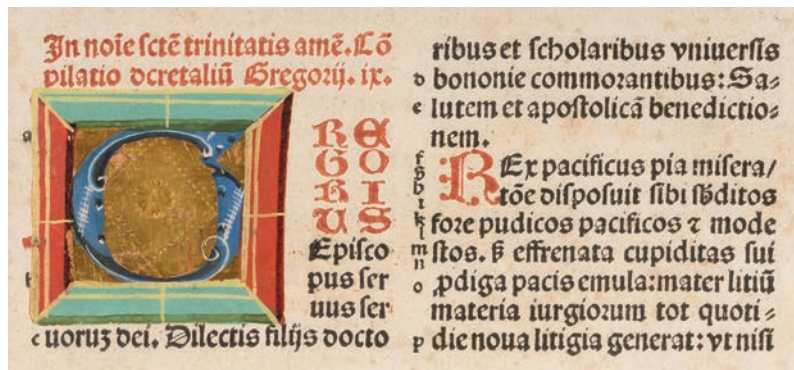 In noīe sctē trinitatis amē. Cō
pilatio dcretaliū Gregorij. ix.
G
RE
GO
RI
US
Episco
pus ser
uus ser
uoruꝫ dei. Dilectis filijs docto
ribus et scholaribus vniuersis
bononie commorantibus: Sa⸗
lutem et apostolicā benedictio⸗
nem.
REx pacificus pia misera/
tōe disposuit sibi sb̄ditos
fore pudicos pacificos ⁊ mode
stos. ß effrenata cupiditas sui
ꝓdiga pacis emula: mater litiū
materia iurgiorum tot quoti⸗
die noua litigia generat: vt nisi